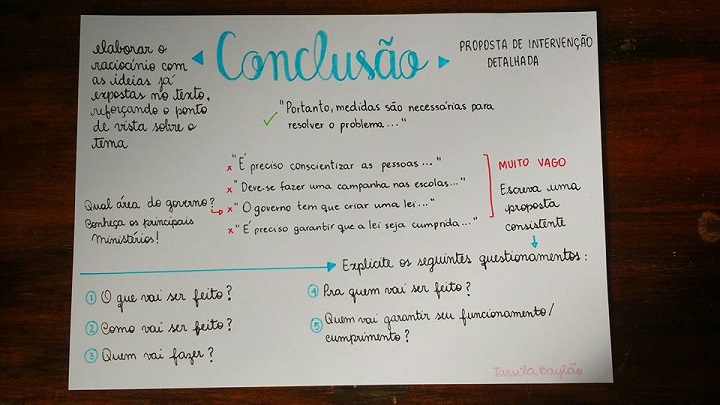 Conclusão
elaborar o
raciocínio com
as ideias já
expostas no texto,
reforçando o ponto
de vista sobre o
tema
PROPOSTA DE INTERVENÇÃO
DETALHADA
"Portanto, medidas são necessárias para
resolver o problema..."
x "É preciso conscientizar as pessoas..."
x "Deve-se fazer uma campanha nas escolas..."
x "O governo tem que criar uma lei..."
x "É preciso garantir que a lei seja cumprida..."
Qual área do governo?
Conheça os principais
Ministérios!
MUITO VAGO
Escreva uma
proposta
consistente
Explicite os seguintes questionamentos:
1 O que vai ser feito?
2 Como vai ser feito?
3 Quem vai fazer?
4 Pra quem vai ser feito?
5 Quem vai garantir seu funcionamento/
cumprimento?
Tarsila Baylão